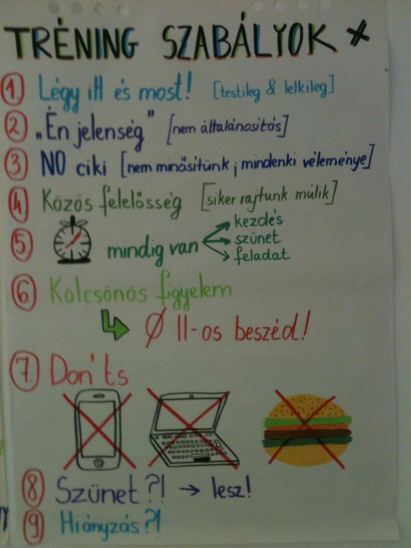 TRÉNING SZABÁLYOK
1 Légy itt és most! [testileg & lelkileg]
2 „Én jelenség" [nem általánosítás]
3 NO ciki [nem minősítünk; mindenki véleménye]
4 Közös felelősség [siker rajtunk múlik]
5 mindig van kezdés
szünet
feladat
6 Kölcsönös figyelem
Ø 11-os beszéd!
7. Don'ts
8 Szünet?! → lesz!
9 Hiányzás?!